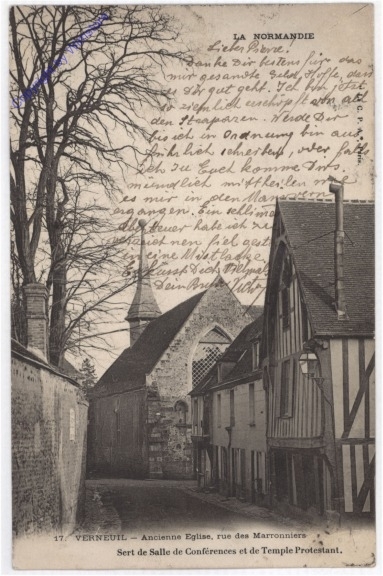 LA NORMANDIE
Lieber Pierre!
Danke Dir bestens für das
mir gesandte Geld. Hoffe, dass
es Dir gut geht. Ich bin jetzt
so ziemlich erschöpft von all
den Strapazen. Werde Dir
bis ich in Ordnung bin aus-
führlich schreiben, oder falls
ich zu Euch komme Dir's
mündlich mittheilen
es mir in den Manövern
ergangen. Ein schlimmes
habe ich
sich gest
eine Mistlache
küsst Dich
Dein Bruder
17. VERNEUIL - Ancienne Eglise, rue des Marronniers
Sert de Salle de Conférences et de Temple Protestant.